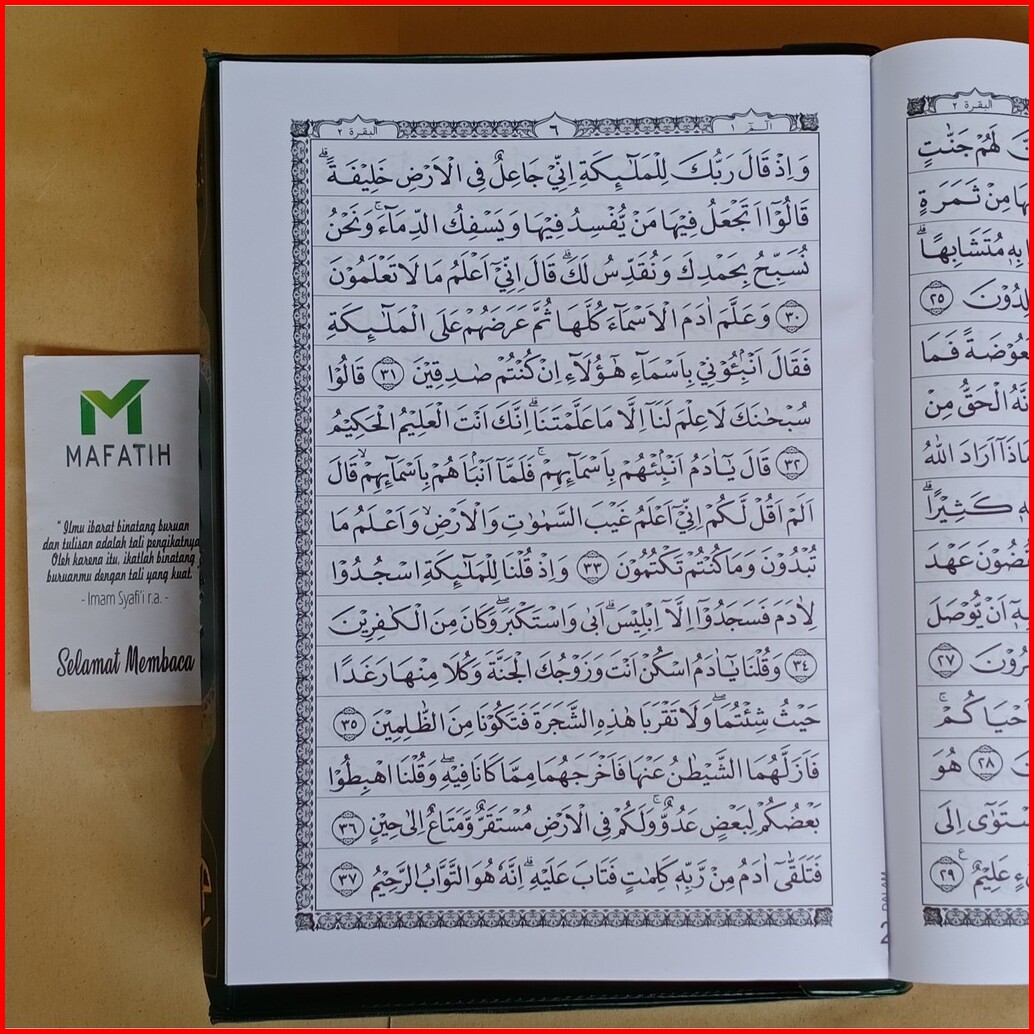 البقرة ٢
٦
الٓمّٓ ١
وَاِذْ قَالَ رَبُّكَ لِلْمَلٰۤىِٕكَةِ اِنِّيْ جَاعِلٌ فِى الْاَرْضِ خَلِيْفَةً ۗ
قَالُوْٓا اَتَجْعَلُ فِيْهَا مَنْ يُّفْسِدُ فِيْهَا وَيَسْفِكُ الدِّمَاۤءَۚ وَنَحْنُ
نُسَبِّحُ بِحَمْدِكَ وَنُقَدِّسُ لَكَ ۗ قَالَ اِنِّيْٓ اَعْلَمُ مَا لَا تَعْلَمُوْنَ
٣٠ وَعَلَّمَ اٰدَمَ الْاَسْمَاۤءَ كُلَّهَا ثُمَّ عَرَضَهُمْ عَلَى الْمَلٰۤىِٕكَةِ
فَقَالَ اَنْۢبِـُٔوْنِيْ بِاَسْمَاۤءِ هٰٓؤُلَاۤءِ اِنْ كُنْتُمْ صٰدِقِيْنَ ٣١ قَالُوْا
سُبْحٰنَكَ لَا عِلْمَ لَنَآ اِلَّا مَا عَلَّمْتَنَا ۗاِنَّكَ اَنْتَ الْعَلِيْمُ الْحَكِيْمُ
٣٢ قَالَ يٰٓاٰدَمُ اَنْۢبِئْهُمْ بِاَسْمَاۤىِٕهِمْ ۚ فَلَمَّآ اَنْۢبَاَهُمْ بِاَسْمَاۤىِٕهِمْۙ قَالَ
اَلَمْ اَقُلْ لَّكُمْ اِنِّيْٓ اَعْلَمُ غَيْبَ السَّمٰوٰتِ وَالْاَرْضِۙ وَاَعْلَمُ مَا
تُبْدُوْنَ وَمَا كُنْتُمْ تَكْتُمُوْنَ ٣٣ وَاِذْ قُلْنَا لِلْمَلٰۤىِٕكَةِ اسْجُدُوْا
لِاٰدَمَ فَسَجَدُوْٓا اِلَّآ اِبْلِيْسَۗ اَبٰى وَاسْتَكْبَرَۖ وَكَانَ مِنَ الْكٰفِرِيْنَ
٣٤ وَقُلْنَا يٰٓاٰدَمُ اسْكُنْ اَنْتَ وَزَوْجُكَ الْجَنَّةَ وَكُلَا مِنْهَا رَغَدًا
حَيْثُ شِئْتُمَاۖ وَلَا تَقْرَبَا هٰذِهِ الشَّجَرَةَ فَتَكُوْنَا مِنَ الظّٰلِمِيْنَ ٣٥
فَاَزَلَّهُمَا الشَّيْطٰنُ عَنْهَا فَاَخْرَجَهُمَا مِمَّا كَانَا فِيْهِۖ وَقُلْنَا اهْبِطُوْا
بَعْضُكُمْ لِبَعْضٍ عَدُوٌّۚ وَلَكُمْ فِى الْاَرْضِ مُسْتَقَرٌّ وَّمَتَاعٌ اِلٰى حِيْنٍ ٣٦
فَتَلَقّٰٓى اٰدَمُ مِنْ رَّبِّهٖ كَلِمٰتٍ فَتَابَ عَلَيْهِ ۗ اِنَّهٗ هُوَ التَّوَّابُ الرَّحِيْمُ ٣٧
البقرة ٢
لَهُمْ جَنّٰتٍ
مِنْ ثَمَرَةٍ
بِهٖ مُتَشَابِهًاۗ
٢٥
فَمَا
الْحَقُّ مِنْ
اَرَادَ اللّٰهُ
كَثِيْرًاۗ
عَهْدَ
اَنْ يُّوْصَلَ
٢٧
٢٨ هُوَ
اِلَى
عَلِيْمٌ ٢٩
MAFATIH
" Ilmu ibarat binatang buruan
dan tulisan adalah tali pengikatnya
Oleh karena itu, ikatlah binatang
buruanmu dengan tali yang kuat.
- Imam Syafi'i r.a. -
Selamat Membaca